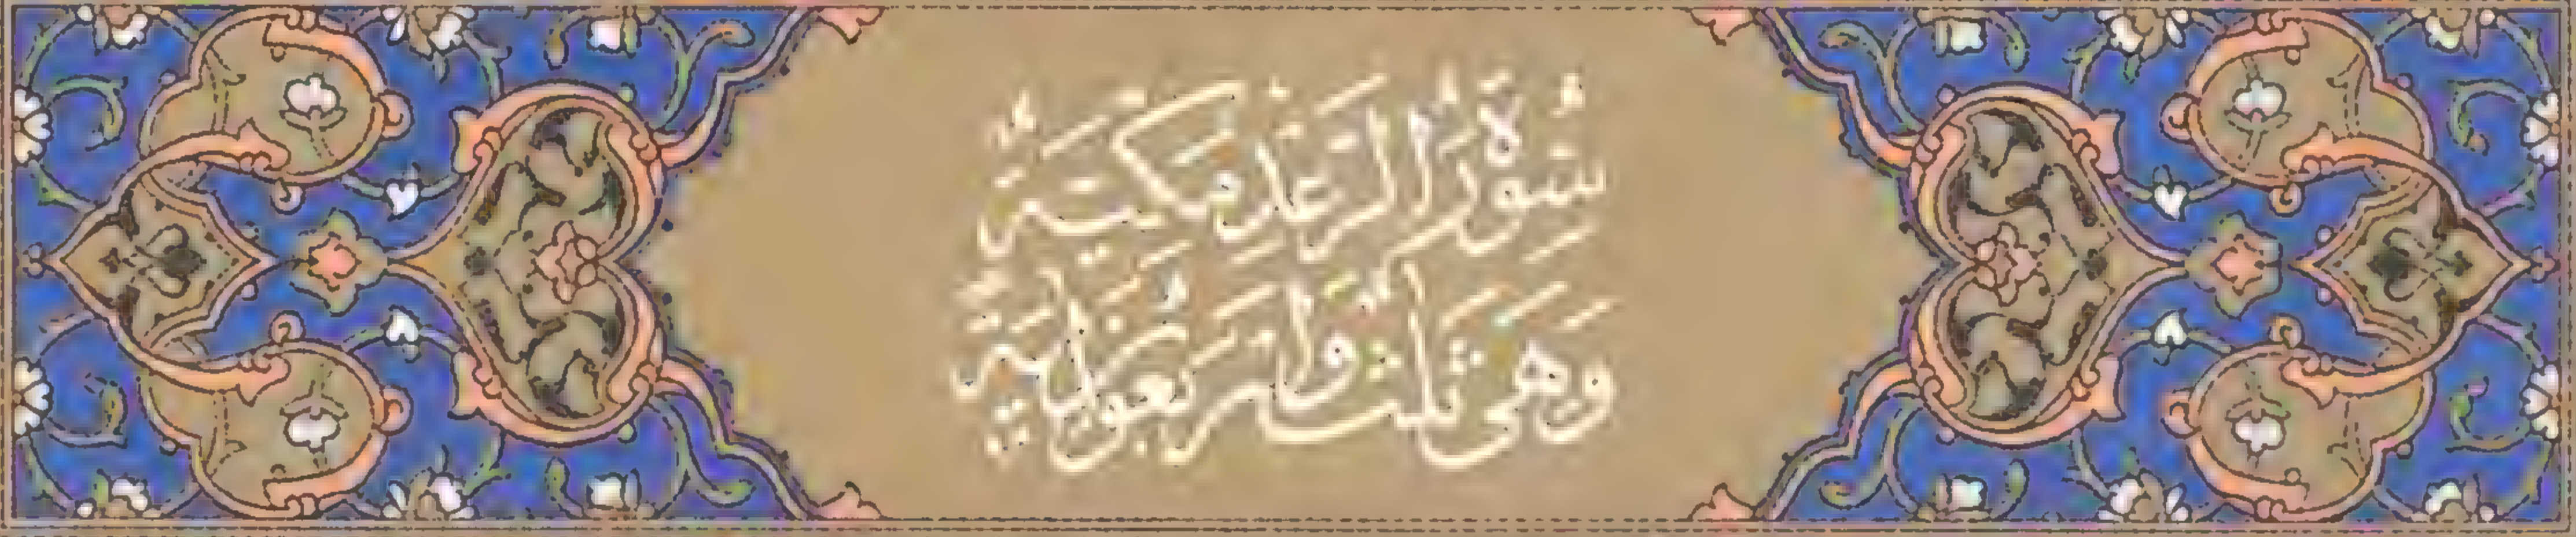 سُورَةُ الرَّعْدِ مَكِّيَّةٌ
وَهِيَ ثَلٰثٌ وَاَرْبَعُونَ اٰيَةً